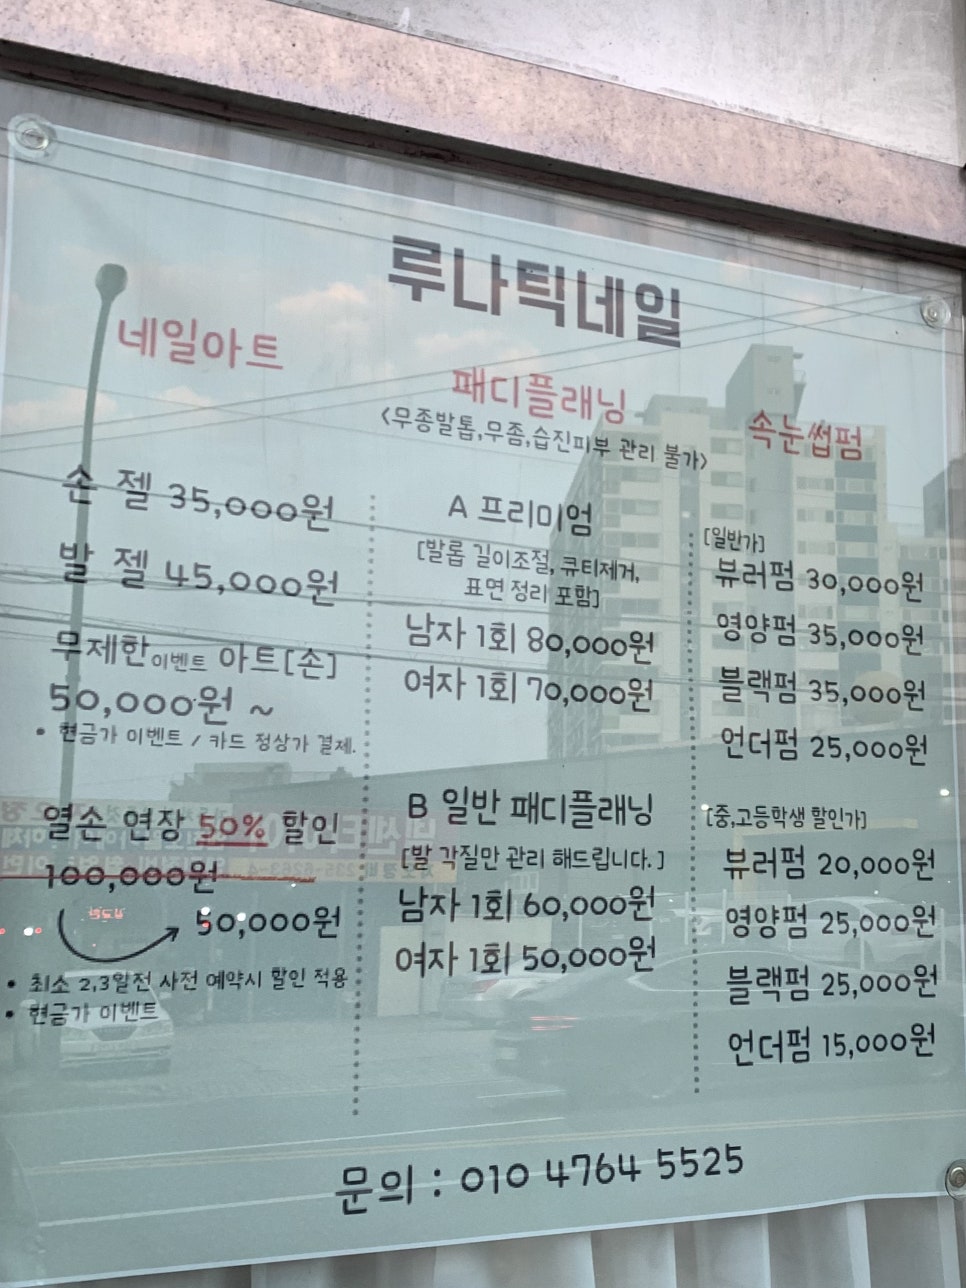 루나틱네일
네일아트
손 젤 35,000원
발 젤 45,000원
무제한이벤트 아트[손]
50,000원 ~
• 현금가 이벤트 / 카드 정상가 결제.
열손 연장 50% 할인
100,000원
50,000원
• 최소 2,3일전 사전 예약시 할인 적용
• 현금가 이벤트
패디플래닝
<무종발톱,무좀,습진피부 관리 불가>
A 프리미엄
[발롭 길이조절, 큐티제거,
표면 정리 포함]
남자 1회 80,000원
여자 1회 70,000원
B 일반 패디플래닝
[발 각질만 관리 해드립니다.]
남자 1회 60,000원
여자 1회 50,000원
속눈썹펌
[일반가]
뷰러펌 30,000원
영양펌 35,000원
블랙펌 35,000원
언더펌 25,000원
[중,고등학생 할인가]
뷰러펌 20,000원
영양펌 25,000원
블랙펌 25,000원
언더펌 15,000원
문의 : 010 4764 5525